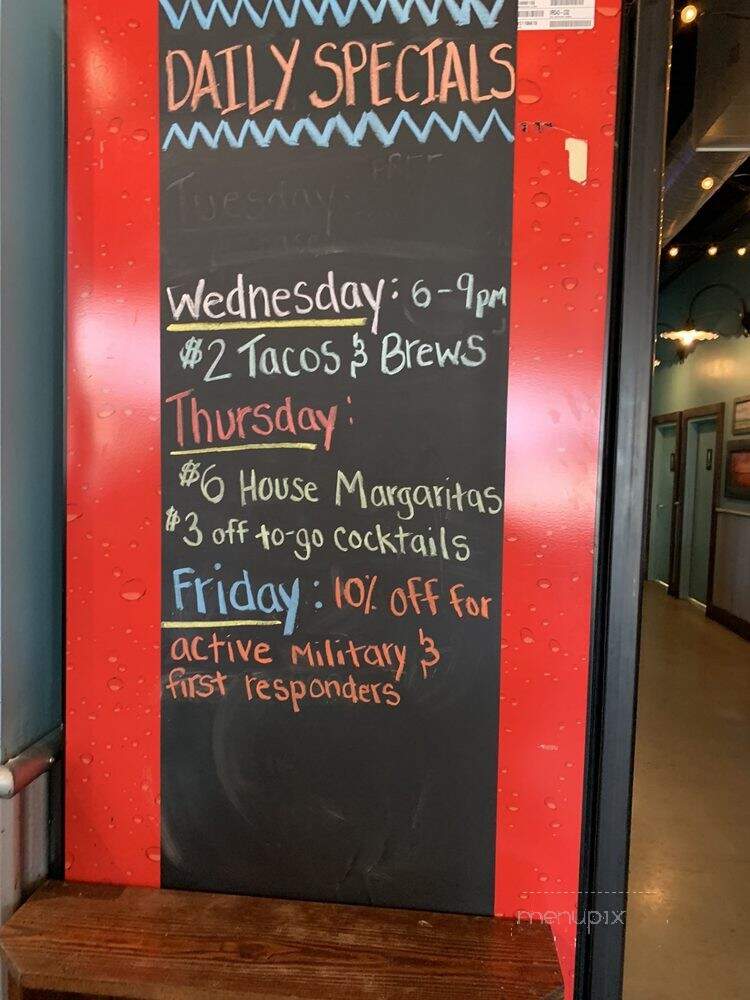 DAILY SPECIALS
Tuesday:
Wednesday: 6-9pm
$2 Tacos & Brews
Thursday:
$6 House Margaritas
$3 off to-go cocktails
Friday: 10% off for
active Military &
first responders
menupix